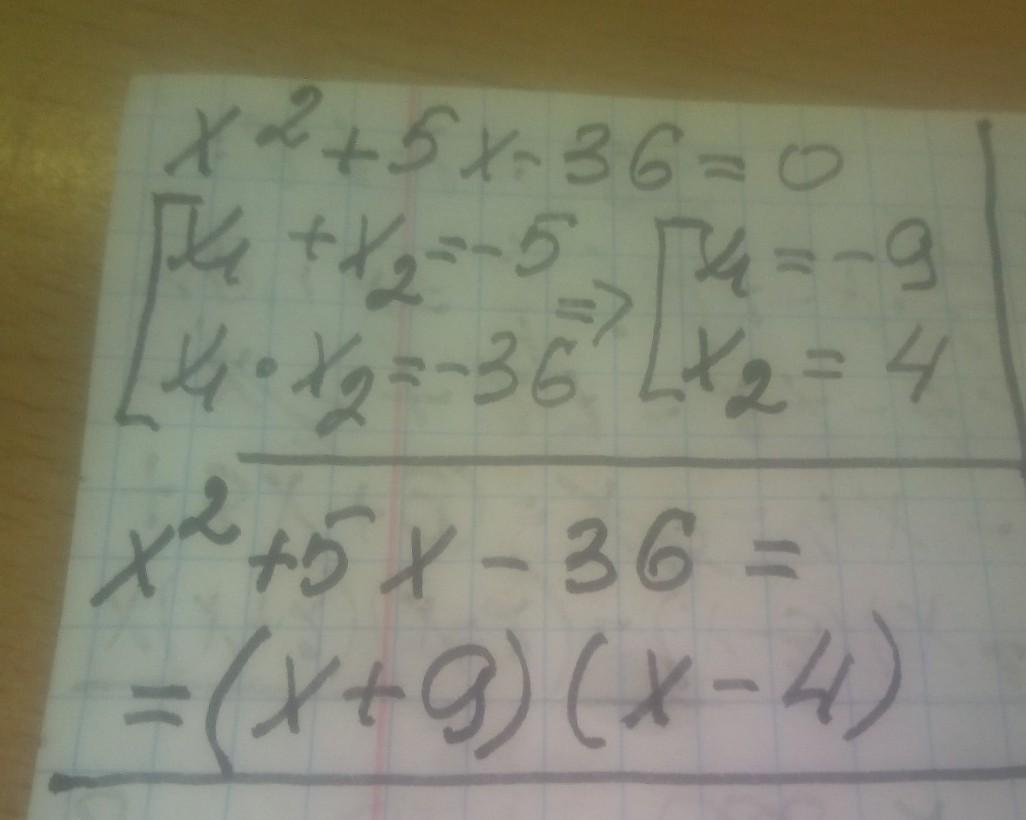 x² + 5x - 36 = 0
[x₁ + x₂ = -5 => [x₁ = -9
x₁ · x₂ = -36 x₂ = 4
x² + 5x - 36 =
= (x + 9) (x - 4)